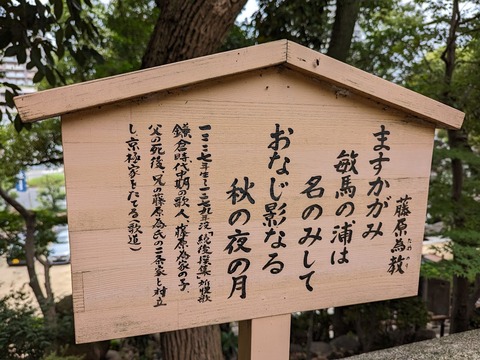 藤原為教
ためのり
ますかがみ
敏馬の浦は
名のみして
おなじ影なる
秋の夜の月
一二二七年生〜一二七九年没「続後撰集」初撰歌
鎌倉時代中期の歌人、藤原為家の子、
父の死後、兄の藤原為氏の二条家と対立
し、京極家をたてる（歌道）